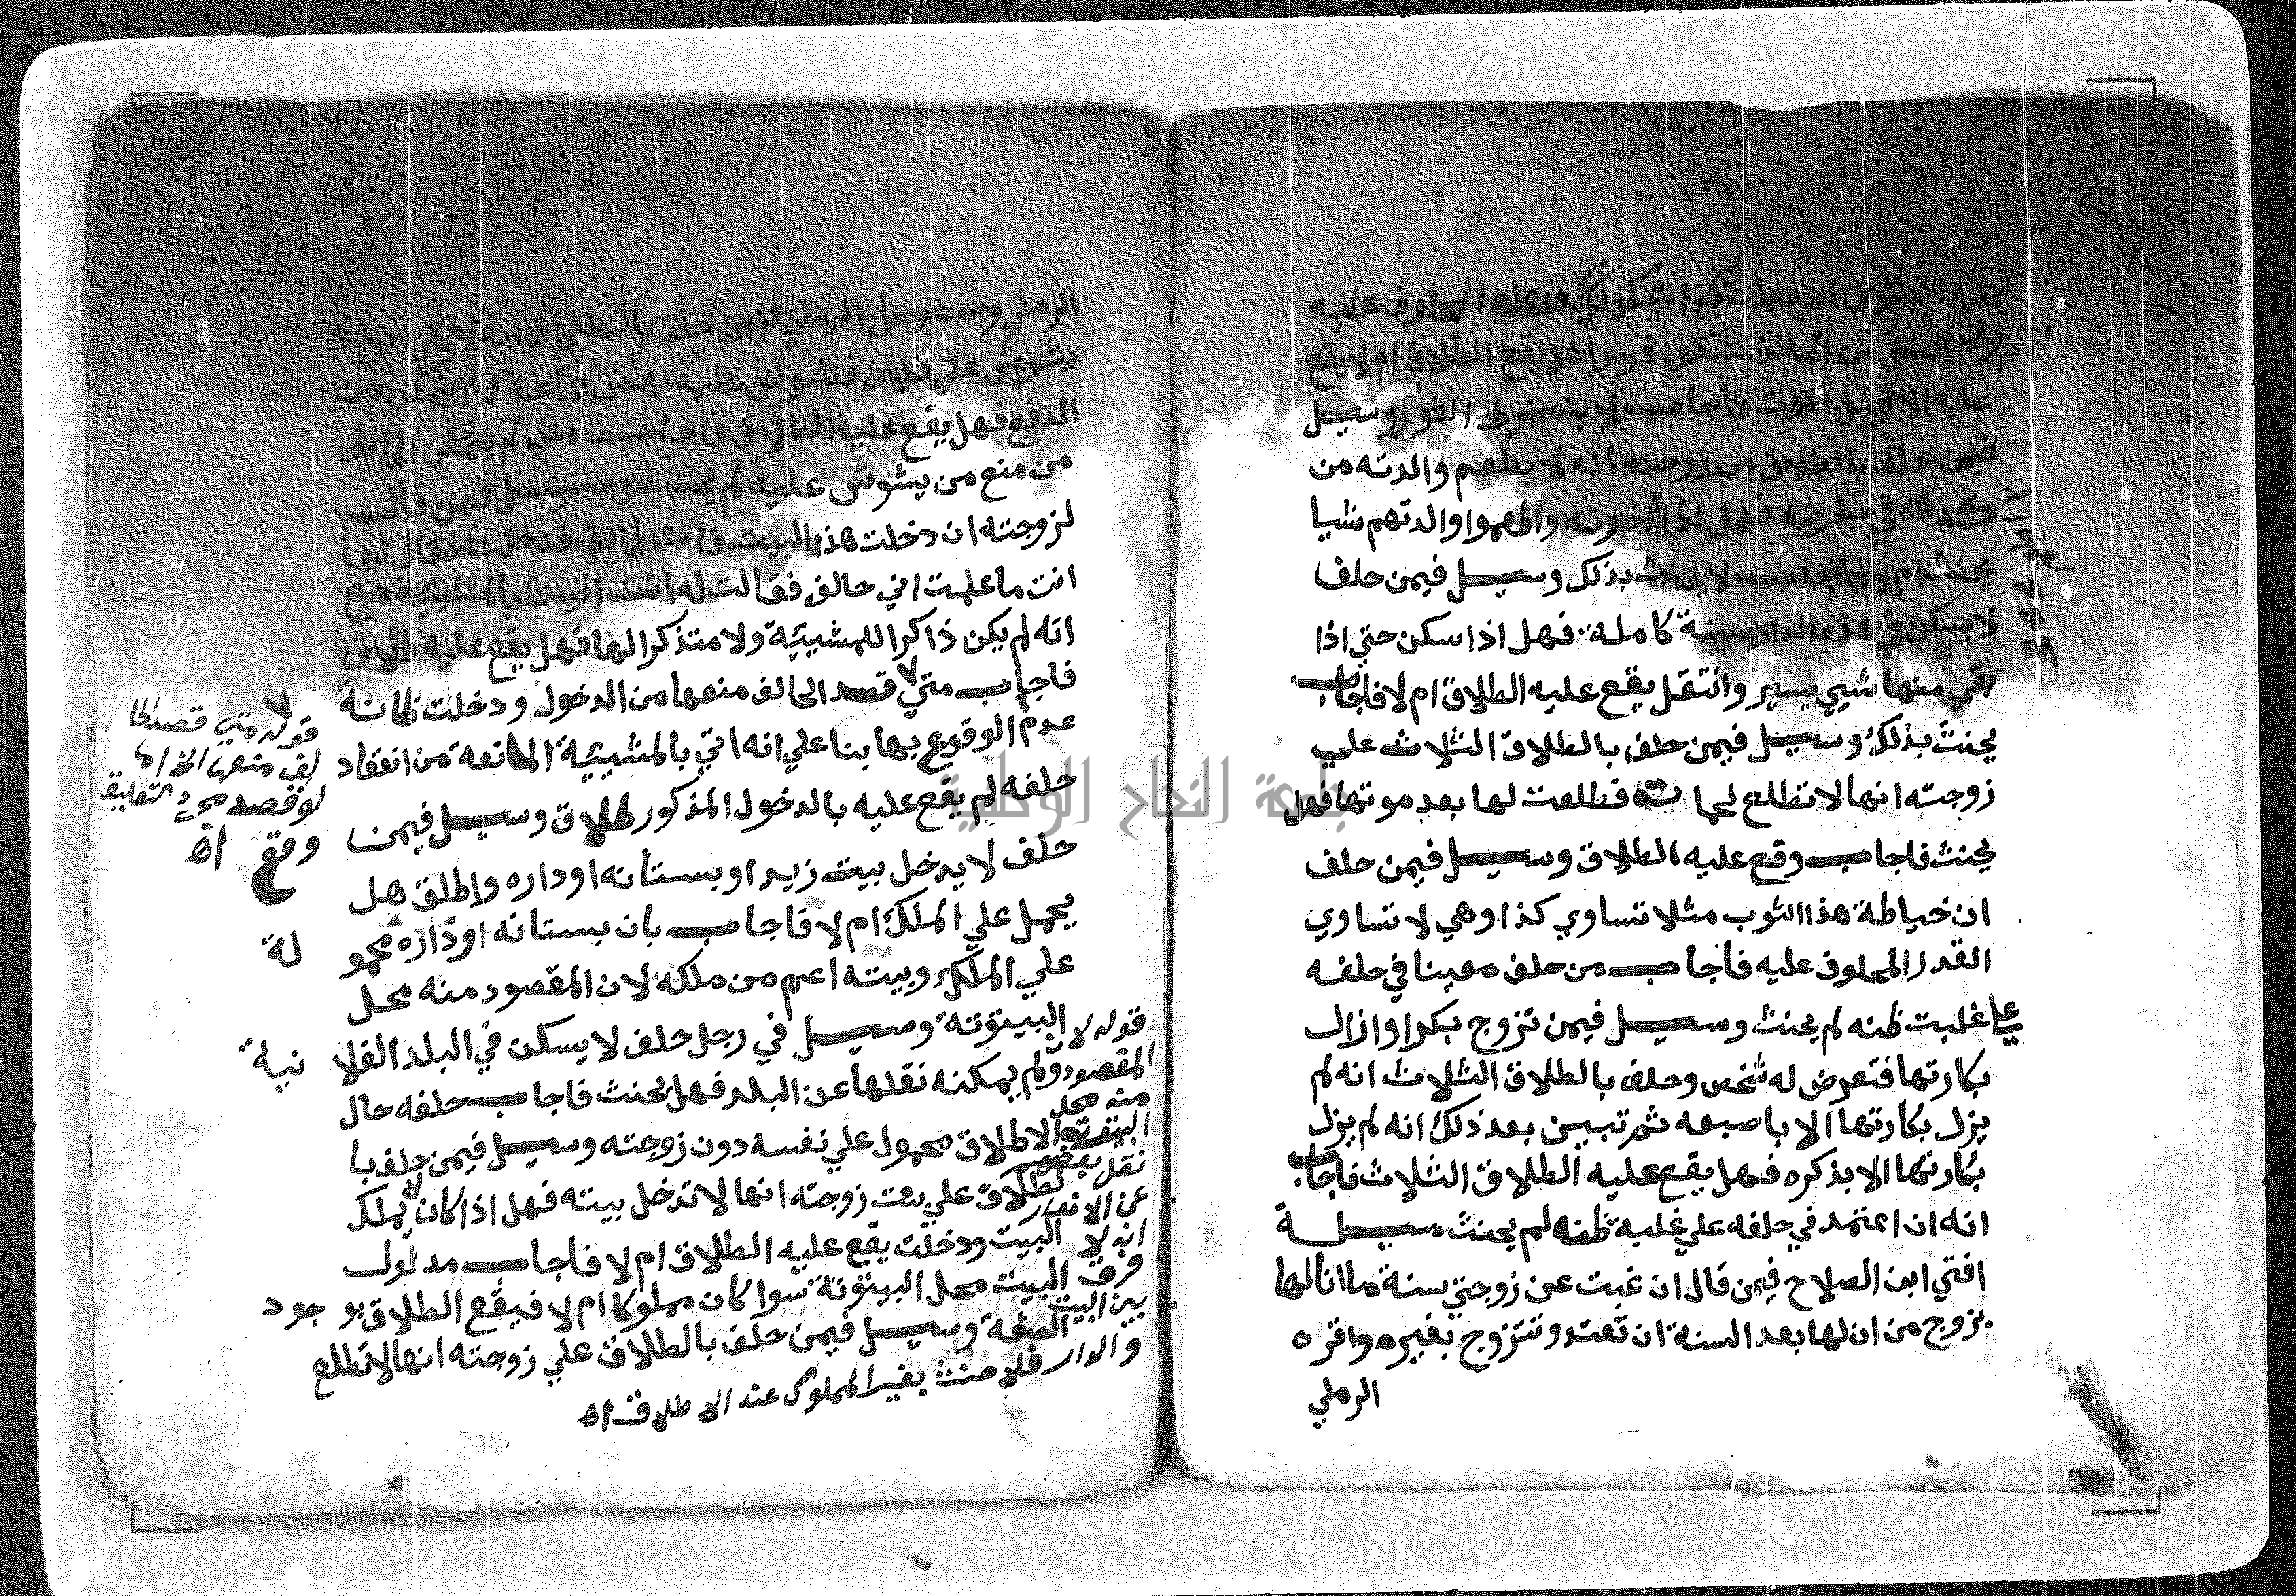 ١٨
عليه الطلاق ان فعلت كذا اشكونك ففعله المحلوف عليه
ولم يحصل من الحالف شكوا فورا هل يقع الطلاق ام لا يقع
عليه الا قبيل الموت فاجاب لا يشترط الفور وسيل
فيمن حلف بالطلاق من زوجته انه لا يطعم والدته من
كده في سفرته فهل اذا اخوته واطعموا والدتهم شيا
يحنث ام لا فاجاب لا يحنث بذلك وسيل فيمن حلف
لا يسكن في هذه الدار سنة كاملة فهل اذا سكن حتي اذا
بقي منها شيي يسير وانتقل يقع عليه الطلاق ام لا فاجاب
يحنث بذلك وسيل فيمن حلف بالطلاق الثلاث علي
زوجته انها لا تطلع لحماته فطلعت لها بعد موتها فهل
يحنث فاجاب وقع عليه الطلاق وسيل فيمن حلف
ان خياطة هذا الثوب مثلا تساوي كذا وهي لا تساوي
القدر المحلوف عليه فاجاب من حلف معينا في حلفه
علي غلبت ظنه لم يحنث وسيل فيمن تزوج بكرا وازال
بكارتها فتعرض له شخص وحلف بالطلاق الثلاث انه لم
يزل بكارتها الا باصبعه ثم تبين بعد ذلك انه لم يزل
بكارتها الا بذكره فهل يقع عليه الطلاق الثلاث فاجاب
انه ان اعتمد في حلفه علي غلبة ظنه لم يحنث مسيلة
افتي ابن الصلاح فيمن قال ان غبت عن زوجتي سنة ما انا لها
بزوج من ان لها بعد السنة ان تعتد وتتزوج بغيره واقره
الرملي
١٩
الرملي وسيل الرملي فيمن حلف بالطلاق انه لا يخلي حدا
يشوش علي فلان فشوش عليه بعض جماعة ولم يتمكن من
الدفع فهل يقع عليه الطلاق فاجاب متي لم يتمكن الحالف
من منع من يشوش عليه لم يحنث وسيل فيمن قال
لزوجته ان دخلت هذا البيت فانت طالق فدخلته فقال لها
انت ما علمت اني حالف فقالت له انت اتيت بالمشيية مع
انه لم يكن ذاكرا للمشيية ولا متذكرا لها فهل يقع عليه طلاق
فاجاب متي قصد الحالف منعها من الدخول ودخلت ظانة
عدم الوقوع بها بنا علي انه اتي بالمشيية المانعة من انعقاد
حلفه لم يقع عليه بالدخول المذكور طلاق وسيل فيمن
حلف لا يدخل بيت زيد او بستانه او داره واطلق هل
يحمل علي الملك ام لا فاجاب بان بستانه او داره محمو لة
علي الملك وبيته اعم من ملكه لان المقصود منه محل
البيتوتة وسيل في رجل حلف لا يسكن في البلد الفلا نية
ولم يمكنه نقلها عن البلد فهل يحنث فاجاب حلفه حال
الاطلاق محمول علي نفسه دون زوجته وسيل فيمن حلف با
لطلاق علي بنت زوجته انها لا تدخل بيته فهل اذا كان لا يملك
البيت ودخلت يقع عليه الطلاق ام لا فاجاب مدلول
البيت محل البيتوتة سوا كان مملوكا ام لا فيقع الطلاق بو جود
الصفة وسيل فيمن حلف بالطلاق علي زوجته انها لا تطلع
قوله متي قصد الحا
لف منعها الخ اما
لو قصد مجرد التعليق
وقع اه
قوله لان
المقصود
منه محل
البيتوتة
نقل بعضهم
انه لا
فرق
بين البيت
والدار فلا حنث بغير المملوك عند الاطلاق اه
جامعة النجاح الوطنية